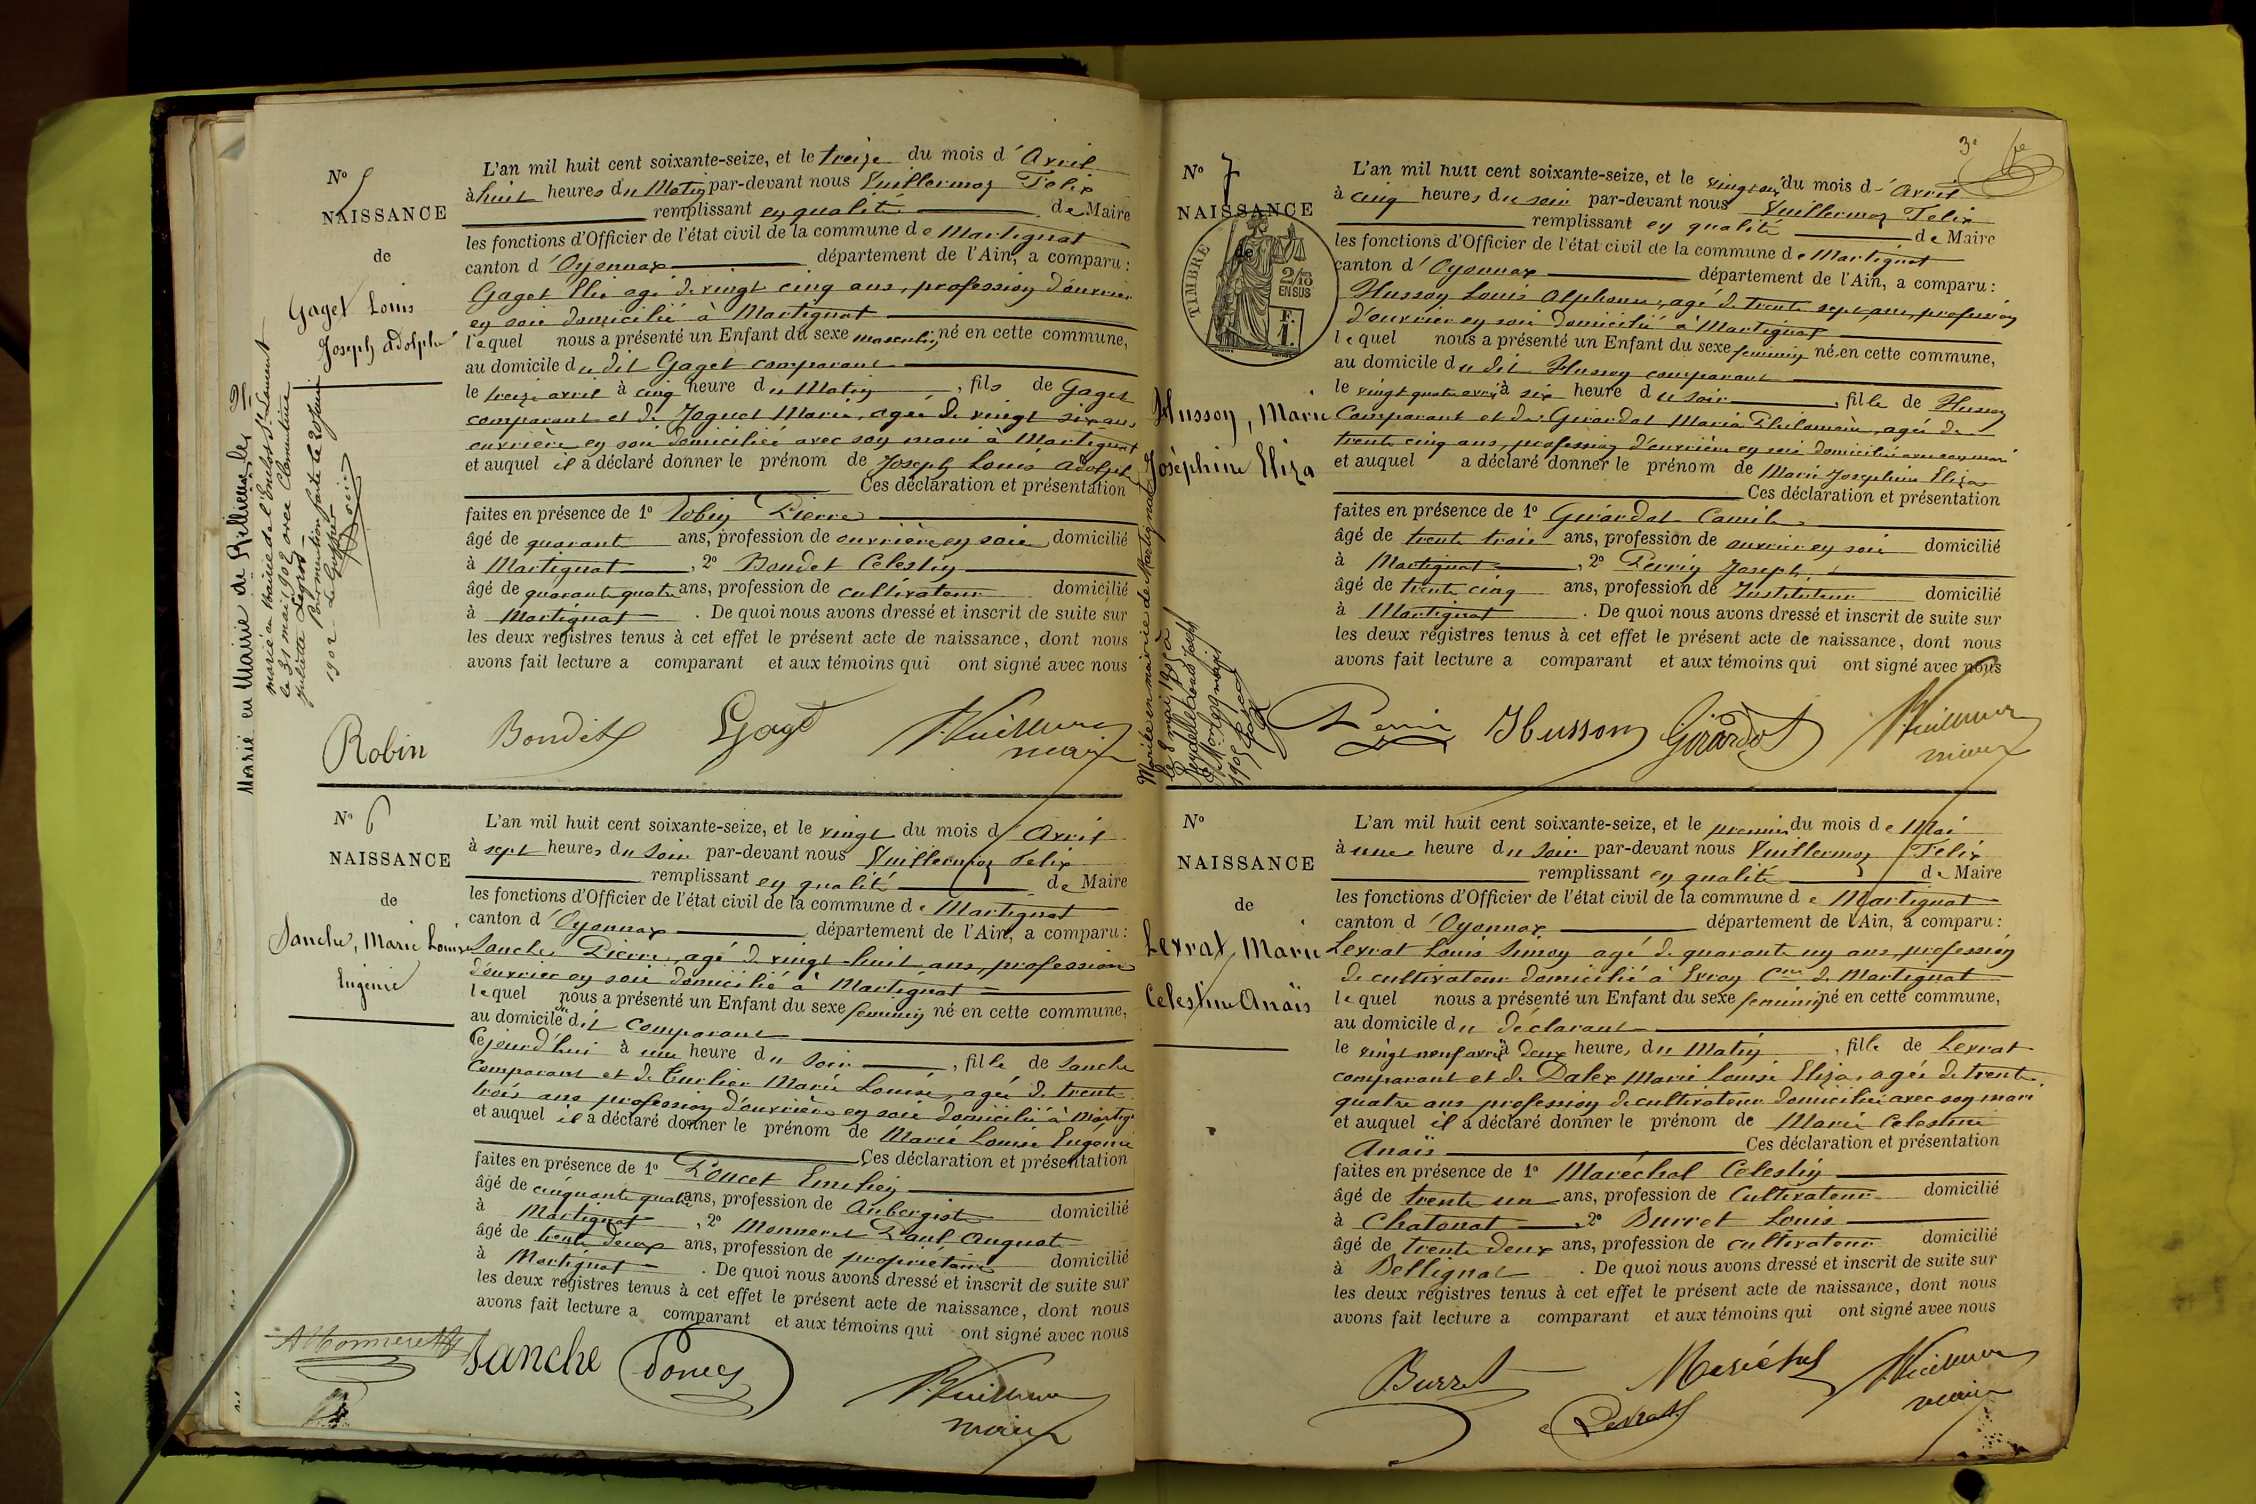 N° 5
NAISSANCE
de
Gaget Louis
Joseph Adolphe
L'an mil huit cent soixante-seize, et le treize du mois d'Avril
à huit heures du Matin par-devant nous Vuillermoz Felix
remplissant en qualité de Maire
les fonctions d'Officier de l'état civil de la commune de Martignat
canton d'Oyonnax département de l'Ain, a comparu :
Gaget Elie agé de vingt cinq ans, profession d'ouvrier
en soie domicilié à Martignat
lequel nous a présenté un Enfant du sexe masculin né en cette commune,
au domicile du dit Gaget comparant
le treize avril à cinq heure du Matin, fils de Gaget
comparant et de Joguet Marie, agée de vingt six ans
ouvrière en soie domiciliée avec son mari à Martignat
et auquel il a déclaré donner le prénom de Joseph Louis Adolphe
Ces déclaration et présentation
faites en présence de 1° Robin Pierre
âgé de quarante ans, profession de ouvrière en soie domicilié
à Martignat, 2° Bondet Celestin
âgé de quarante quatre ans, profession de cultivateur domicilié
à Martignat. De quoi nous avons dressé et inscrit de suite sur
les deux registres tenus à cet effet le présent acte de naissance, dont nous
avons fait lecture a comparant et aux témoins qui ont signé avec nous
Robin Bondet Gaget Vuillermoz
maire
Marié en Mairie de
marié en Mairie de l'Enclos St Laurent
le 31 mai 1902 avec Clementine
Juliette Legros
par mention faite le 20 juin
1902 Le Greffier
N° 6
NAISSANCE
de
Sanche, Marie Louise
Eugénie
L'an mil huit cent soixante-seize, et le vingt du mois d'Avril
à sept heures du Soir par-devant nous Vuillermoz Felix
remplissant en qualité de Maire
les fonctions d'Officier de l'état civil de la commune de Martignat
canton d'Oyonnax département de l'Ain, a comparu :
Sanche Pierre, agé de vingt-huit ans, profession
d'ouvrier en soie domicilié à Martignat
lequel nous a présenté un Enfant du sexe feminin né en cette commune,
au domicile du dit comparant
Cejourd'hui à une heure du Soir, fille de Sanche
Comparant et de Turlier Marie Louise, agée de trente
trois ans profession d'ouvrière en soie domicilié à Martig
et auquel il a déclaré donner le prénom de Marie Louise Eugénie
Ces déclaration et présentation
faites en présence de 1° Poncet Emilien
âgé de cinquante quatre ans, profession de Aubergiste domicilié
à Martignat, 2° Monneret Paul Auguste
âgé de trente deux ans, profession de propriétaire domicilié
à Martignat. De quoi nous avons dressé et inscrit de suite sur
les deux registres tenus à cet effet le présent acte de naissance, dont nous
avons fait lecture a comparant et aux témoins qui ont signé avec nous
Monneret Sanche Poncet Vuillermoz
maire
3e
N° 7
NAISSANCE
de
TIMBRE
2/10 EN SUS
F. 1.
Husson, Marie
Joséphine Eliza
L'an mil huit cent soixante-seize, et le vingt six du mois d'Avril
à cinq heures du soir par-devant nous Vuillermoz Felix
remplissant en qualité de Maire
les fonctions d'Officier de l'état civil de la commune de Martignat
canton d'Oyonnax département de l'Ain, a comparu :
Husson Louis Alphonse, agé de trente sept ans, profession
d'ouvrier en soie domicilié à Martignat
lequel nous a présenté un Enfant du sexe feminin né en cette commune,
au domicile du dit Husson comparant
le vingt quatre avril à six heure du soir, fille de Husson
Comparant et de Girardot Maria Philomène, agée de
trente cinq ans, profession d'ouvrière en soie domicilié avec son mari
et auquel a déclaré donner le prénom de Marie Josephine Eliza
Ces déclaration et présentation
faites en présence de 1° Girardot Camile
âgé de trente trois ans, profession de ouvrier en soie domicilié
à Martignat, 2° Perrin Joseph
âgé de trente cinq ans, profession de Instituteur domicilié
à Martignat. De quoi nous avons dressé et inscrit de suite sur
les deux registres tenus à cet effet le présent acte de naissance, dont nous
avons fait lecture a comparant et aux témoins qui ont signé avec nous
Perrin Husson Girardot Vuillermoz
maire
Mariée en mairie de Martignat
le 8 mai 1905 à
N°
NAISSANCE
de
Levrat, Marie
Celestine Anaïs
L'an mil huit cent soixante-seize, et le premier du mois de Mai
à une heure du Soir par-devant nous Vuillermoz Felix
remplissant en qualité de Maire
les fonctions d'Officier de l'état civil de la commune de Martignat
canton d'Oyonnax département de l'Ain, a comparu :
Levrat Louis Simon agé de quarante un ans, profession
de cultivateur domicilié à Evron Cne de Martignat
lequel nous a présenté un Enfant du sexe feminin né en cette commune,
au domicile du déclarant
le vingt neuf avril à deux heure, du Matin, fille de Levrat
comparant et de Dalex Marie Louise Eliza, agée de trente
quatre ans profession de cultivateur domiciliée avec son mari
et auquel il a déclaré donner le prénom de Marie Celestine
Anaïs Ces déclaration et présentation
faites en présence de 1° Maréchal Celestin
âgé de trente un ans, profession de Cultivateur domicilié
à Chatonat, 2° Burret Louis
âgé de trente deux ans, profession de cultivateur domicilié
à Bellignat. De quoi nous avons dressé et inscrit de suite sur
les deux registres tenus à cet effet le présent acte de naissance, dont nous
avons fait lecture a comparant et aux témoins qui ont signé avec nous
Burret Levrat Maréchal Vuillermoz
maire